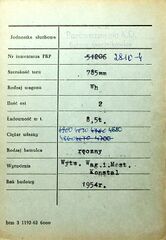 Jednostka służbowa
Nr inwentarza PKP 51206 2810-4
Szerokość toru 785mm
Rodzaj wagonu Wh
Ilość osi 2
Ładowność w t. 8,5t.
Ciężar własny 4880
Rodzaj hamulca ręczny
Wytwórnia Wytw. Wag.i Most. Konstal
Rok budowy 1954r.